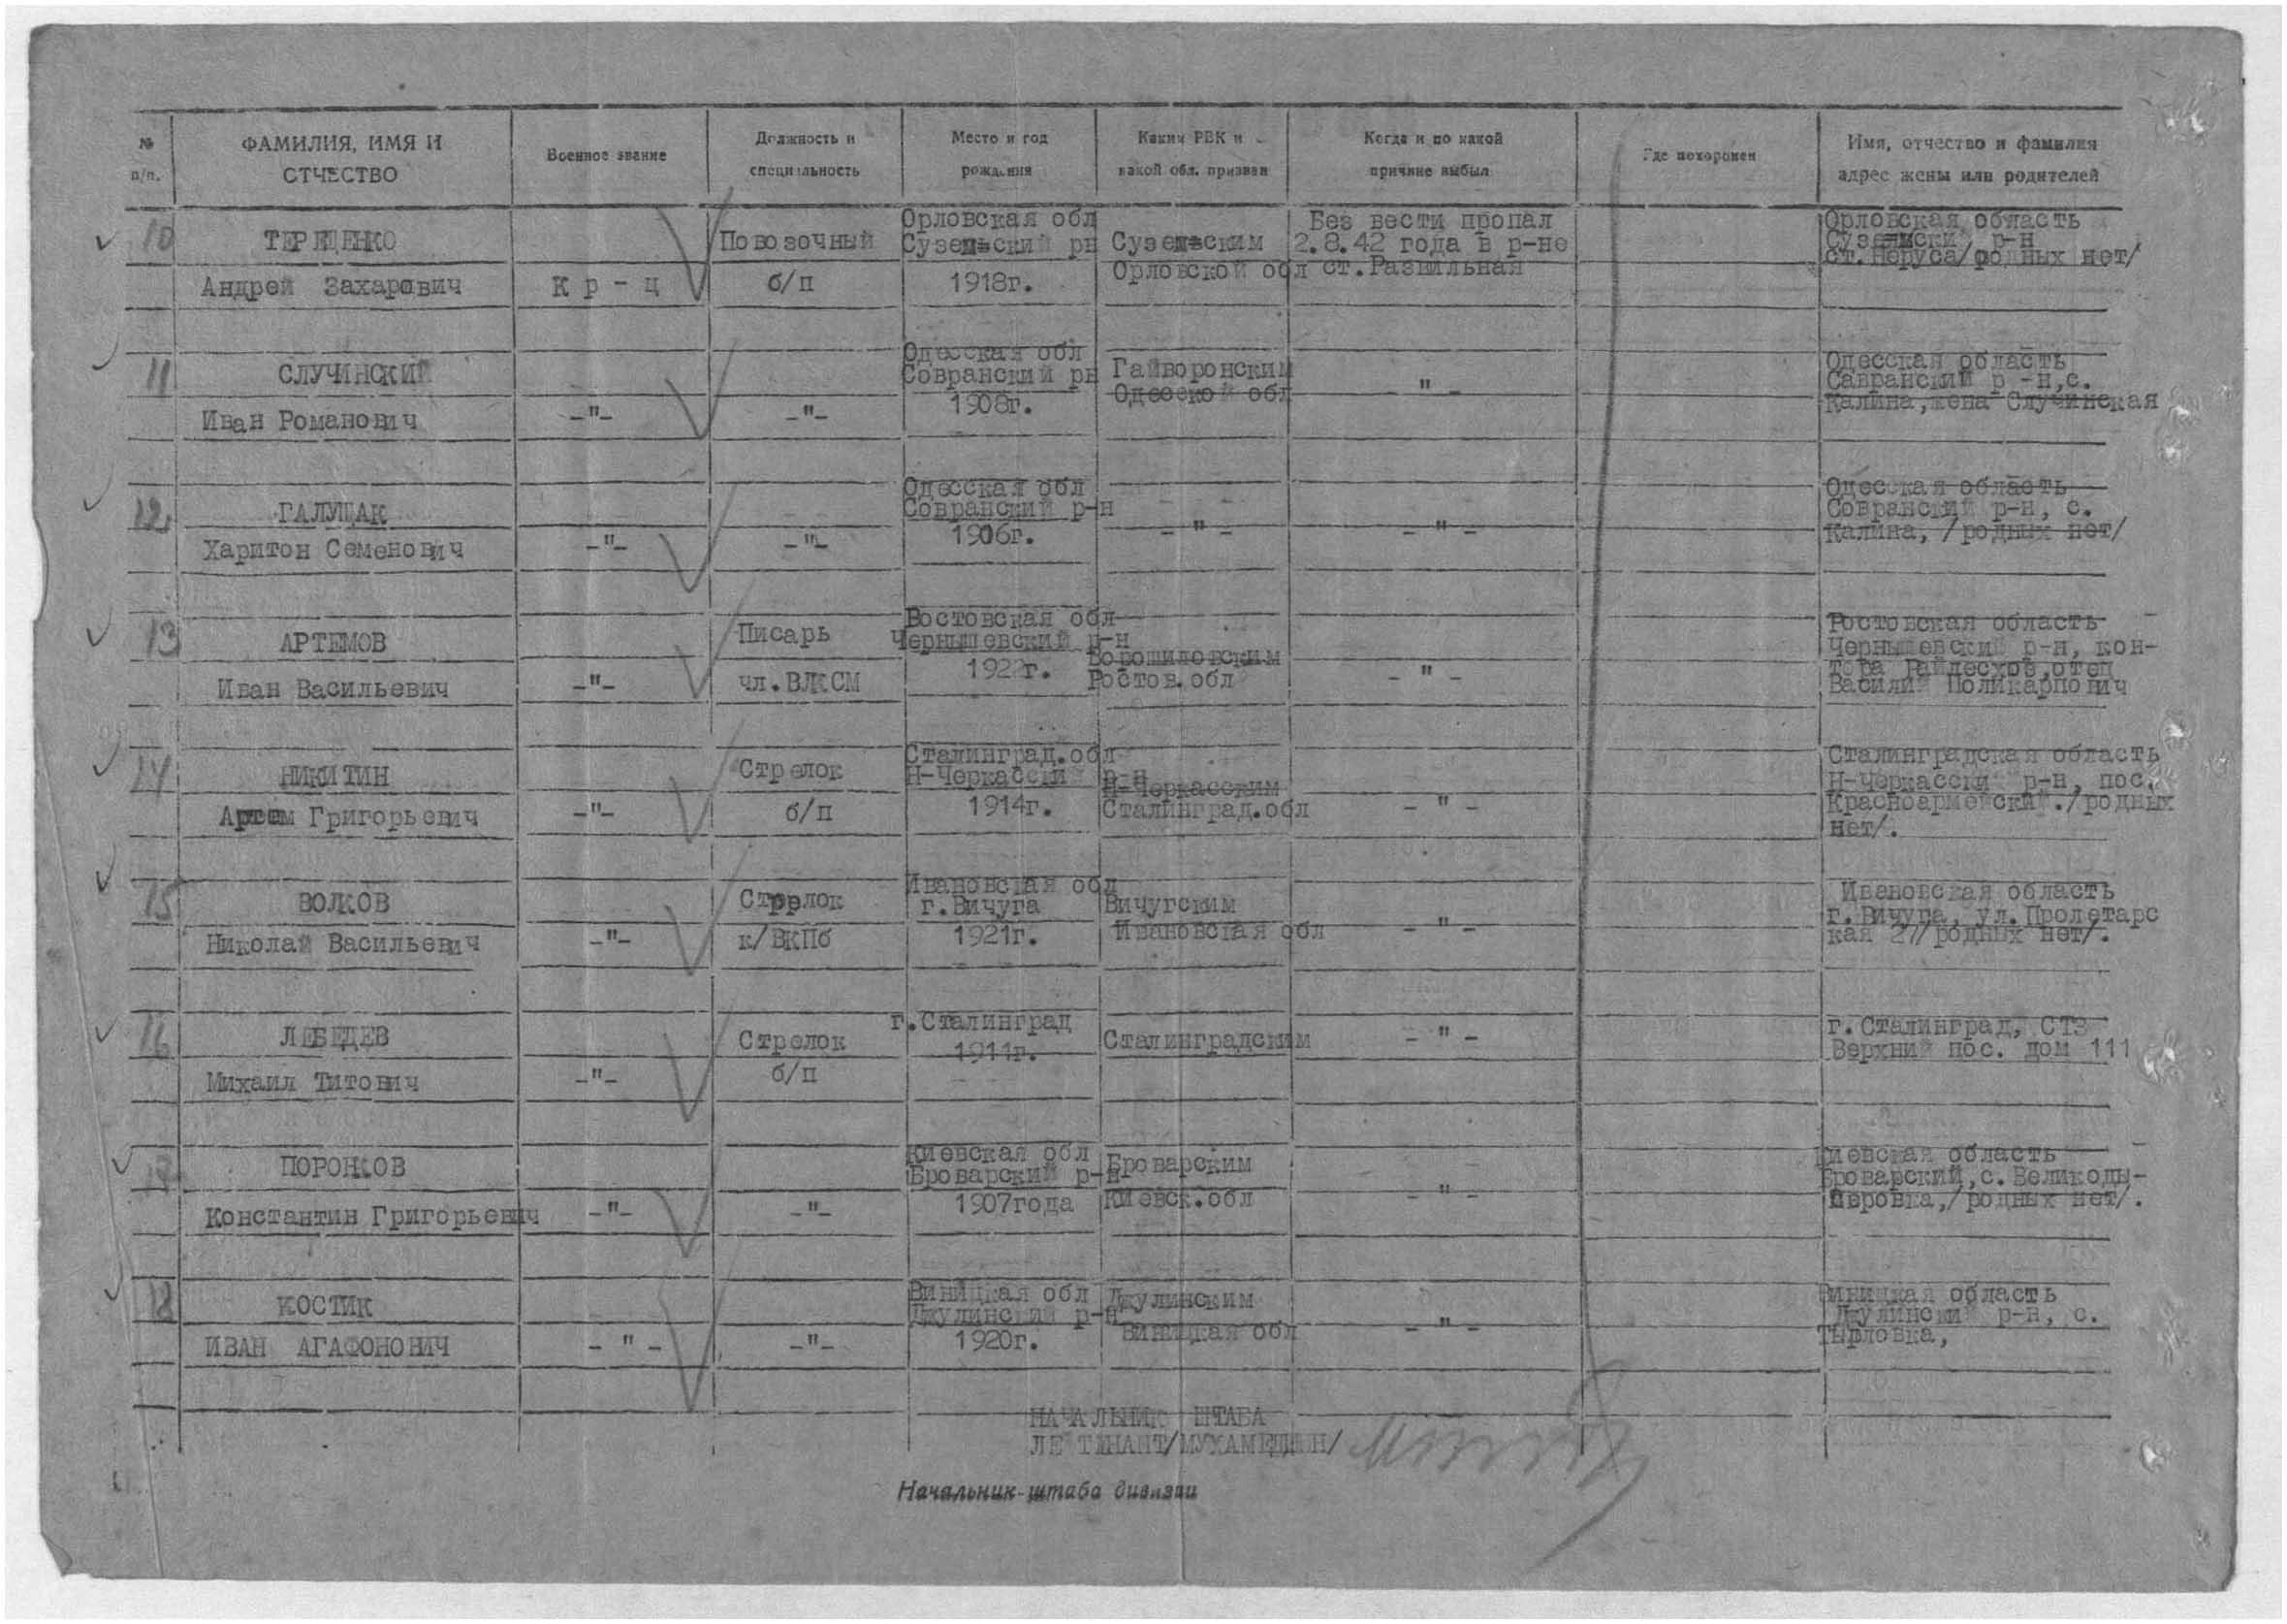 № п/п.
ФАМИЛИЯ, ИМЯ И ОТЧЕСТВО
Военное звание
Должность и специальность
Место и год рождения
Каким РВК и какой обл. призван
Когда и по какой причине выбыл
Где похоронен
Имя, отчество и фамилия адрес жены или родителей
10
ТЕРЕЩЕНКО
Андрей Захарович
Кр-ц
Повозочный
б/п
Орловская обл
Суземьский рн
1918г.
Суземьским
Орловской обл
Без вести пропал
2.8.42 года в р-не
ст.Развильная
Орловская область
р-н
ст.Неруса/родных нет/
11
СЛУЧИНСКИЙ
Иван Романович
-"-
-"-
Одесская обл
Совранский рн
1908г.
Гайворонским
Одесской обл
-"-
Одесская область
Савранский р-н,с.
Калина,жена Случинская
12
ГАЛУЩАК
Харитон Семенович
-"-
-"-
Одесская обл
Совранский р-н
1906г.
-"-
-"-
Одесская область
Совранский р-н, с.
Калина, /родных нет/
13
АРТЕМОВ
Иван Васильевич
-"-
Писарь
чл.ВЛКСМ
Востовская обл
Чернышевский р-н
1922г.
Ворошиловским
Ростов.обл
-"-
Ростовская область
Чернышевский р-н, кон-
тора Райлесхоз,отец
Василий Поликарпович
14
НИКИТИН
Артем Григорьевич
-"-
Стрелок
б/п
Сталинград.обл
Н-Черкасский р-н
1914г.
Н-Черкасским
Сталинград.обл
-"-
Сталинградская область
Н-Черкасский р-н, пос.
Красноармейский./родных
нет/.
15
ВОЛКОВ
Николай Васильевич
-"-
Стрелок
к/ВКПб
Ивановская обл
г.Вичуга
1921г.
Вичугским
Ивановская обл
-"-
Ивановская область
г.Вичуга, ул.Пролетарс
кая 27/родных нет/.
16
ЛЕБЕДЕВ
Михаил Титович
-"-
Стрелок
б/п
г.Сталинград
1911г.
Сталинградским
-"-
г.Сталинград, СТЗ
Верхний пос. дом 111
17
ПОРОНКОВ
Константин Григорьевич
-"-
-"-
Киевская обл
Броварский р-н
1907года
Броварским
Киевск.обл
-"-
Киевская область
Броварский,с.Великоды-
меровка,/родных нет/.
18
КОСТИК
ИВАН АГАФОНОВИЧ
-"-
-"-
Виницкая обл
Джулинский р-н
1920г.
Джулинским
Виницкая обл
-"-
Виницкая область
Джулинский р-н, с.
Тырловка,
НАЧАЛЬНИК ШТАБА
ЛЕЙТЕНАНТ/МУХАМЕДШИН/
Начальник штаба дивизии